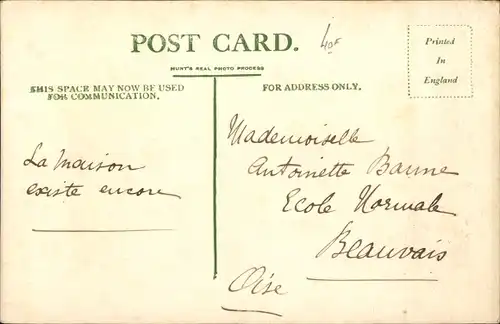 POST CARD.
40F
HUNT'S REAL PHOTO PROCESS
Printed
In
England
THIS SPACE MAY NOW BE USED
FOR COMMUNICATION.
FOR ADDRESS ONLY.
La maison
existe encore
Mademoiselle
Antoinette Baume
Ecole Normale
Beauvais
Oise